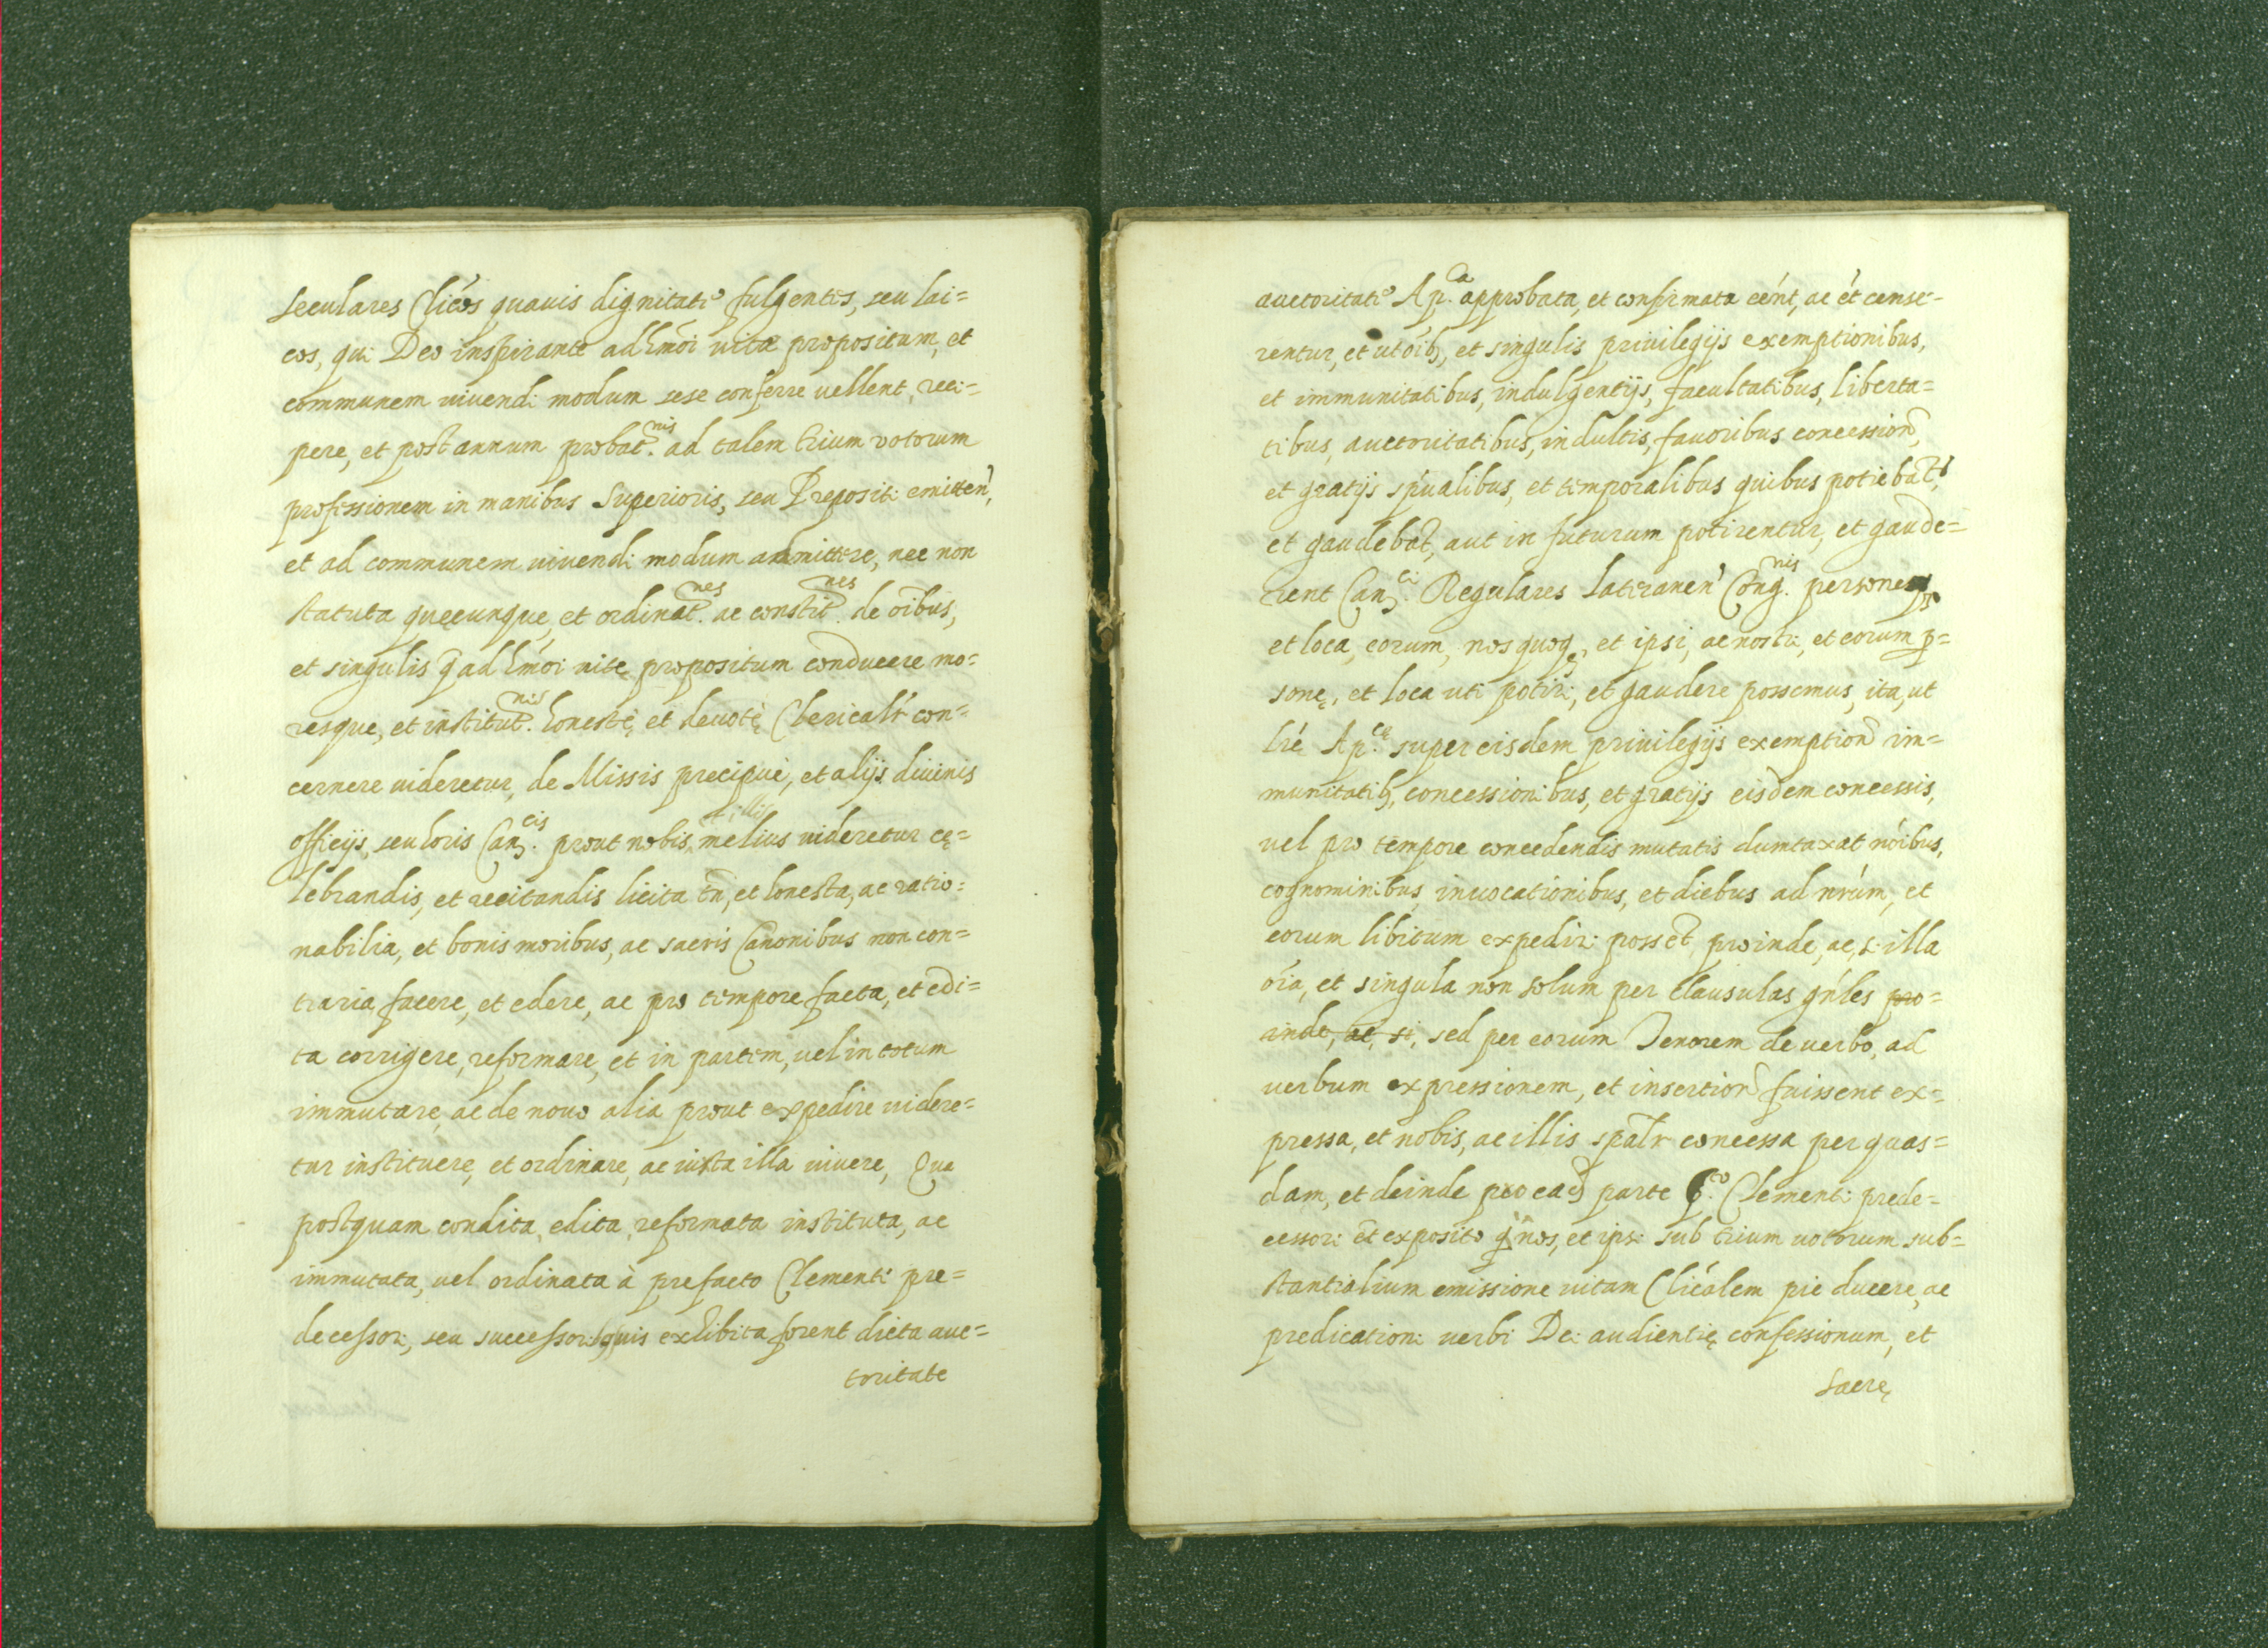 seculares Clićos quauis dignitate fulgentes, seu lai=
cos, qui Deo inspirante ad hmõi uitæ propositum, et
communem uiuendi modum sese conferre uellent, reci-
pere, et post annum probat.nis ad talem trium votorum
professionem in manibus Superioris, seu Prepositi emitten̄,
et ad communem uiuendi modum admittere, nec non
statuta quęcunque, et ordinat.nes ac constit.nes de oībus,
et singulis q̄ ad hmõi uitę propositum conducere mo-
resque, et institut.nis honestę, et deuotę Clericalr̄ con-
cernere uideretur, de Missis precipuè, et alijs diuinis
officijs, seu horis Can.cis prout nobis, et illis melius uideretur cę=
lebrandis, et recitandis licita tn̄, et honesta, ac ratio=
nabilia, et bonis moribus, ac sacris Canonibus non con=
traria facere, et edere, ac pro tempore facta, et edi=
ta corrigere, reformare, et in partem, uel in totum
immutare, ac de nouo alia prout expedire uidere=
tur instituere, et ordinare, ac iuxta illa uiuere, Que
postquam condita, edita, reformata instituta, ac
immutata, uel ordinata à prefacto Clementi pre=
decessori, seu successoribus suis exhibita forent dicta auc=
toritate
auctoritate Ap.ca approbata, et confirmata eént, ac ét cense-
rentur, et ut oīb, et singulis priuilegijs exemptionibus,
et immunitatibus, indulgentijs, facultatibus, liberta=
tibus, auctoritatibus, indultis, fauoribus concession̄,
et gratijs sṕualibus, et temporalibus quibus potiebat.r
et gaudebat, aut in futurum potirentur, et gaude=
rent Can.ci Regulares lateranen̄ Cong.nis personę
et loca, eorum, nos quoq, et ipsi, ac nostri, et eorum p=
sonę, et loca uti potiri, et gaudere possemus, ita, ut
lr̄é Ap.cę super eisdem priuilegijs exemption̄ im=
munitatib, concessionibus, et gratijs eisdem concessis,
uel pro tempore concedendis mutatis dumtaxat nóibus,
cognominibus, inuocationibus, et diebus ad nrúm, et
eorum libitum expediri possét, proinde, ac, si illa
oīa, et singula non solum per clausulas gńles pro=
inde, ac, si, sed per eorum Tenorem de uerbo, ad
uerbum expressionem, et insertion̄ fuissent ex=
pressa, et nobis, ac illis spalr̄ concessa per quas=
dam, et deinde pro ead parte p.to Clementi prede=
cessori ét exposito q̇ nos, et ipsi sub trium uotorum sub=
stantialium emissione uitam Clićalem pie ducere, ac
predicationi uerbi Dei audientię confessionum, et
Sacrę